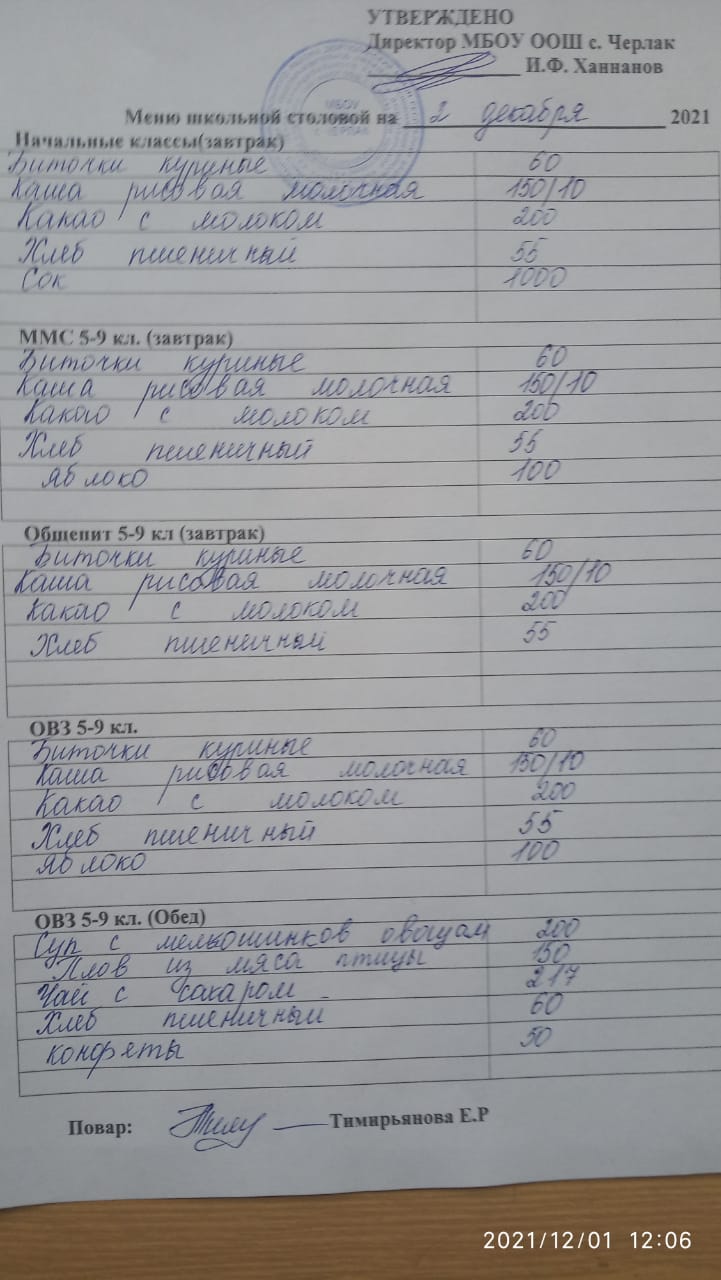 УТВЕРЖДЕНО
Директор МБОУ ООШ с. Черлак
И.Ф. Ханнанов
МБОУ
с. ЧЕРЛАК
Меню школьной столовой на 2 декабря 2021
Начальные классы(завтрак)
Биточки куриные 60
Каша рисовая молочная 150/10
Какао с молоком 200
Хлеб пшеничный 55
Сок 1000
ММС 5-9 кл. (завтрак)
Биточки куриные 60
Каша рисовая молочная 150/10
Какао с молоком 200
Хлеб пшеничный 55
Яблоко 100
Общепит 5-9 кл (завтрак)
Биточки куриные 60
Каша рисовая молочная 150/10
Какао с молоком 200
Хлеб пшеничный 55
ОВЗ 5-9 кл.
Биточки куриные 60
Каша рисовая молочная 150/10
Какао с молоком 200
Хлеб пшеничный 55
Яблоко 100
ОВЗ 5-9 кл. (Обед)
Суп с мелкошинков овощам 200
Плов из мяса птицы 150
Чай с сахаром 217
Хлеб пшеничный 60
конфеты 50
Повар: Тимирьянова Е.Р
2021/12/01 12:06